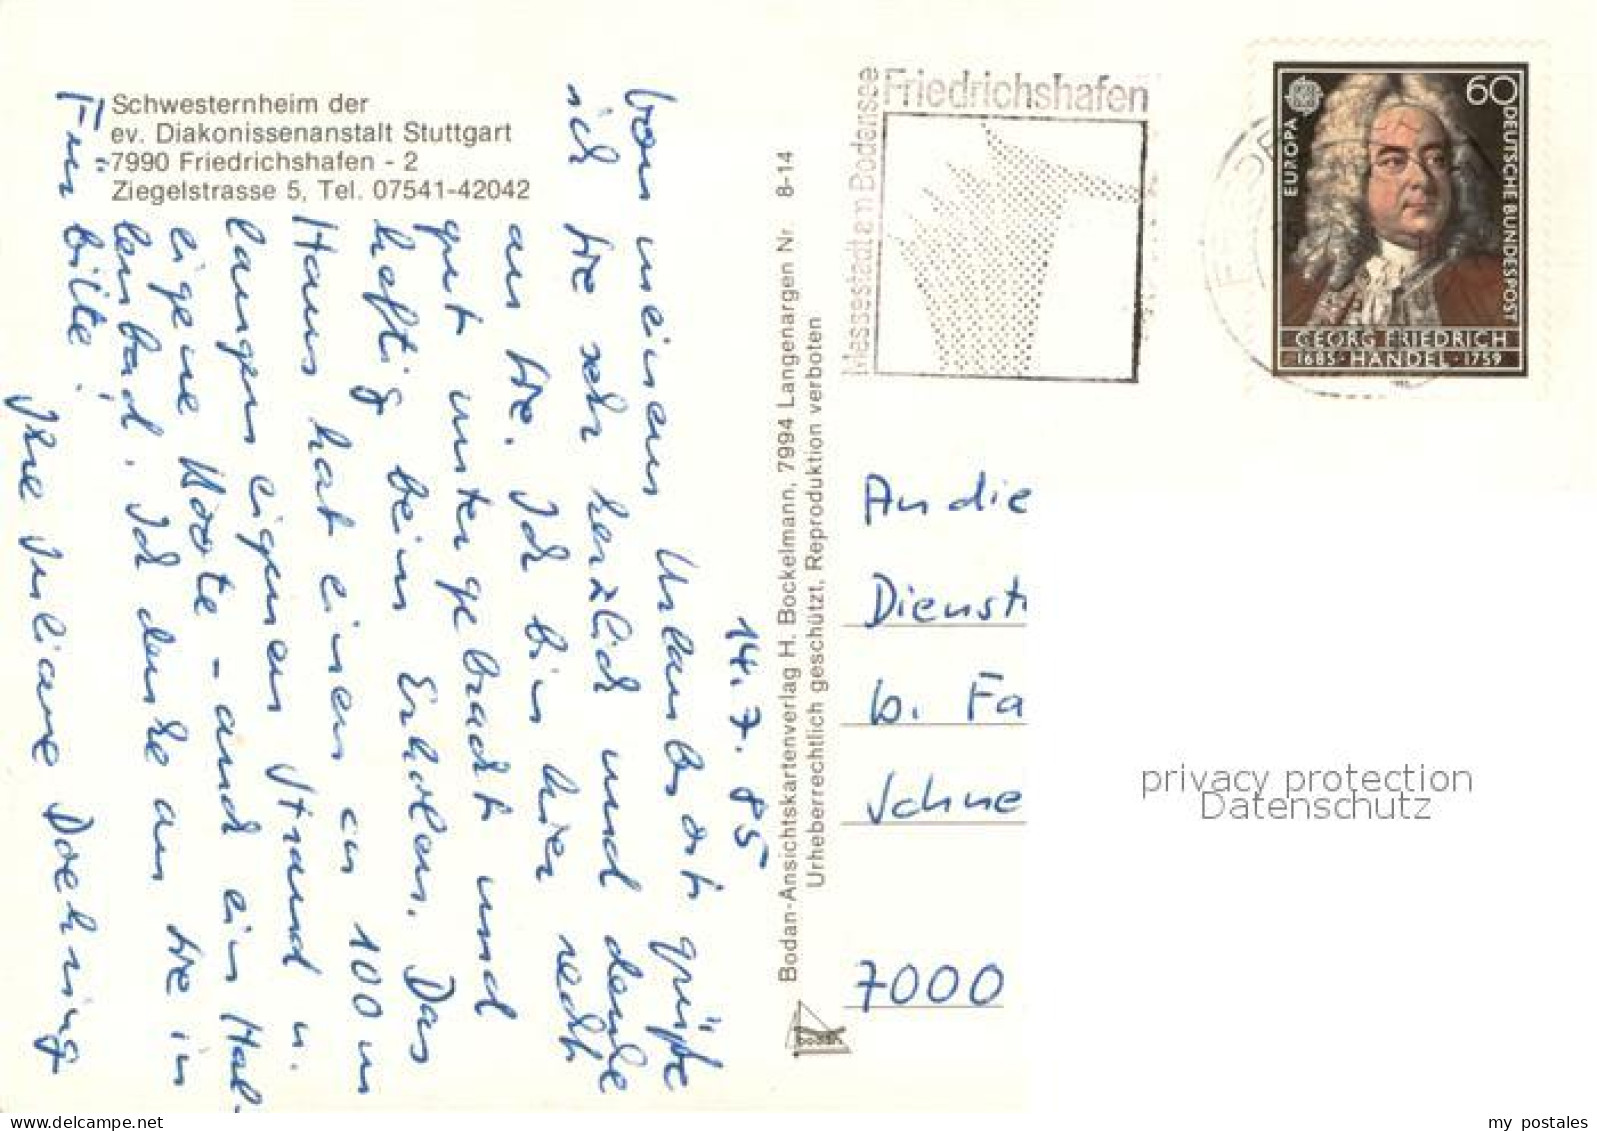 Schwesternheim der
ev. Diakonissenanstalt Stuttgart
7990 Friedrichshafen - 2
Ziegelstrasse 5, Tel. 07541-42042
14.7.85
Von meinem Urlaubsort grüße
ich Sie sehr herzlich und denke
an Sie. Ich bin hier recht
gut untergebracht und
heftig beim Erholen. Das
Haus hat einen an 100 m
langen eigenen Strand u.
eigene Boote - und ein Hal-
lenbad. Ich denke an Sie in
Fürbitte!
Ihre Juliane Doehring
Bodan-Ansichtskartenverlag H. Bockelmann, 7994 Langenargen Nr. 8-14
Urheberrechtlich geschützt, Reproduktion verboten
bodan
Messestadt am Bodensee
Friedrichshafen
60
EUROPA
DEUTSCHE BUNDESPOST
GEORG FRIEDRICH
1685 · HÄNDEL · 1759
An die
Dienst
b. Fa
Schne
7000
privacy protection
Datenschutz
my postales